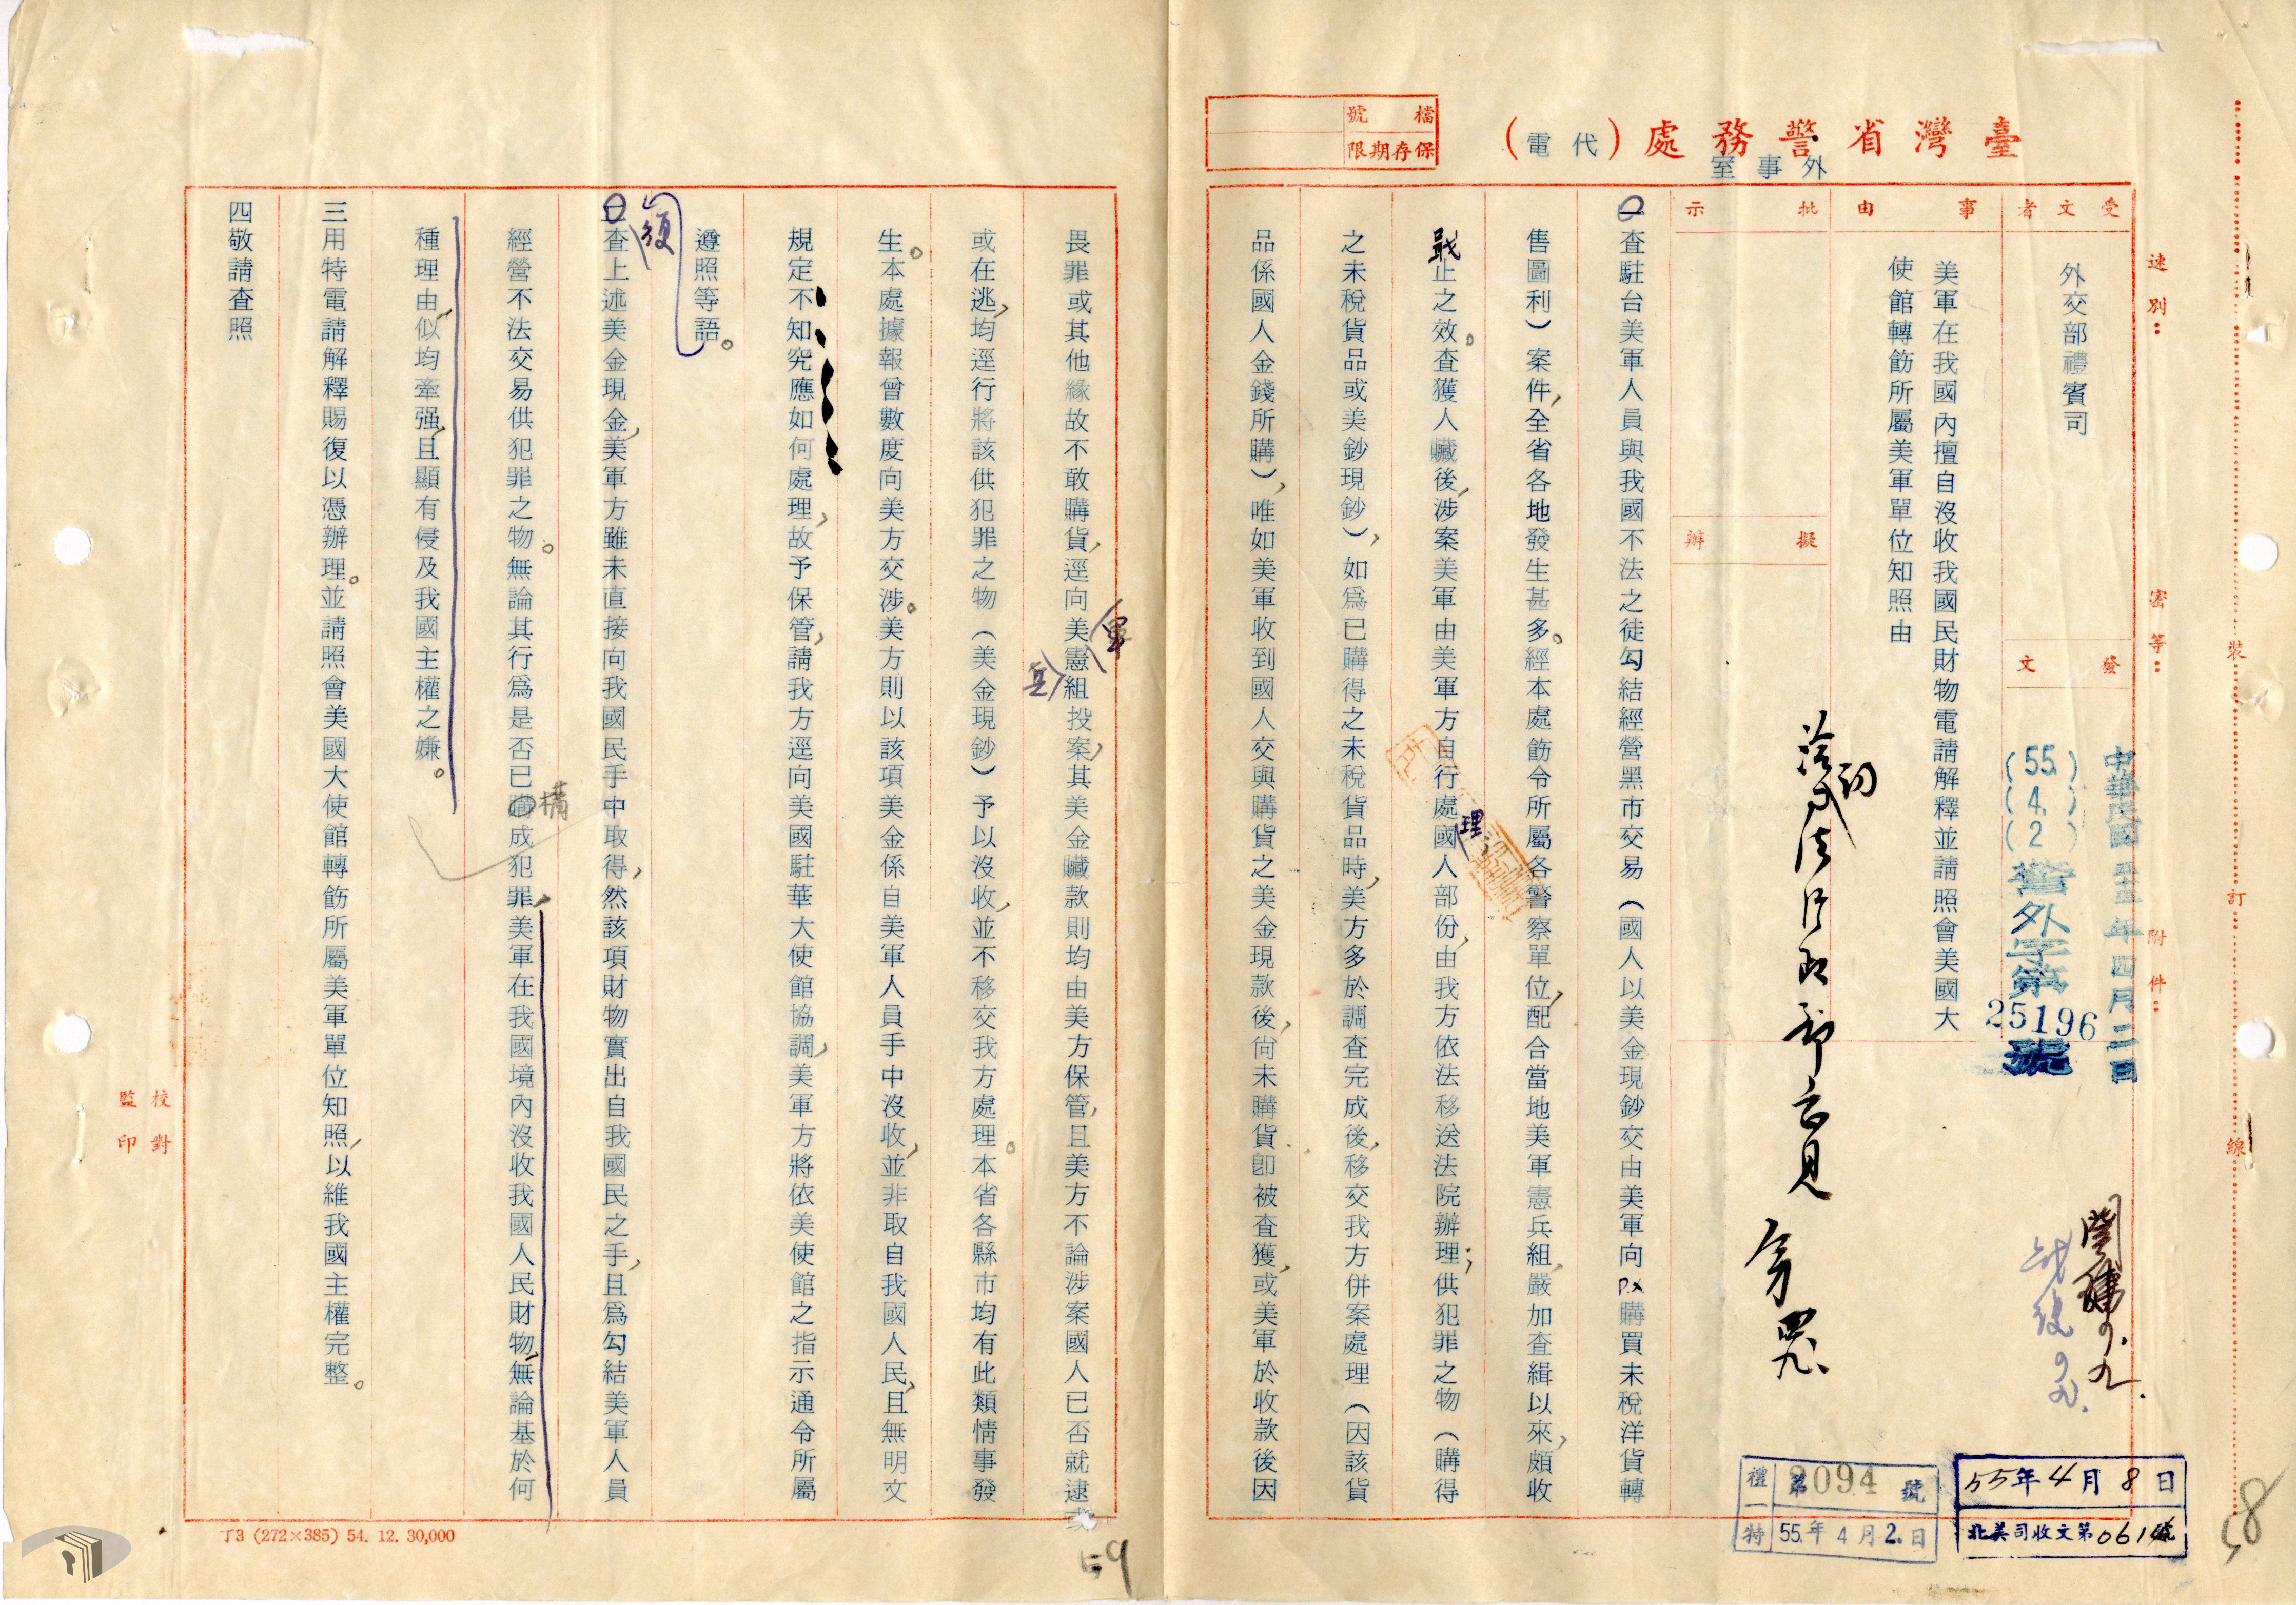 檔號
保存期限
臺灣省警務處(代電)
外事室
速別：
密等：
附件：
裝
訂
線
受文者
外交部禮賓司
發文
中華民國五十五年四月二日
(55)(4)(2)警外字第25196號
事由
美軍在我國內擅自沒收我國民財物電請解釋並請照會美國大
使館轉飭所屬美軍單位知照由
批示
擬辦
洽
初
一查駐台美軍人員與我國不法之徒勾結經營黑市交易（國人以美金現鈔交由美軍向PX購買未稅洋貨轉
售圖利）案件，全省各地發生甚多。經本處飭令所屬各警察單位，配合當地美軍憲兵組，嚴加查緝以來，頗收
戢止之效。查獲人贓後，涉案美軍由美軍方自行處理，國人部份，由我方依法移送法院辦理；供犯罪之物（購得
之未稅貨品或美鈔現鈔），如為已購得之未稅貨品時，美方多於調查完成後，移交我方併案處理（因該貨
品係國人金錢所購），唯如美軍收到國人交與購貨之美金現款後，尚未購貨即被查獲，或美軍於收款後因
畏罪或其他緣故不敢購貨，逕向美軍憲兵組投案，其美金贓款則均由美方保管，且美方不論涉案國人已否就逮或
或在逃，均逕行將該供犯罪之物（美金現鈔）予以沒收，並不移交我方處理。本省各縣市均有此類情事發
生。本處據報曾數度向美方交涉。美方則以該項美金係自美軍人員手中沒收，並非取自我國人民，且無明文
規定，不知究應如何處理，故予保管，請我方逕向美國駐華大使館協調，美軍方將依美使館之指示通令所屬
遵照等語。
復
二查上述美金現金，美軍方雖未直接向我國民手中取得，然該項財物實出自我國民之手，且為勾結美軍人員
經營不法交易供犯罪之物。無論其行為是否已構成犯罪，美軍在我國境內沒收我國人民財物，無論基於何
種理由，似均牽强，且顯有侵及我國主權之嫌。
三用特電請解釋賜復以憑辦理。並請照會美國大使館轉飭所屬美軍單位知照，以維我國主權完整。
四敬請查照
校對
監印
禮一特
第2094號
55.年4月2.日
55年4月8日
北美司收文第0614號
丁3 (272×385) 54. 12. 30,000
58
59